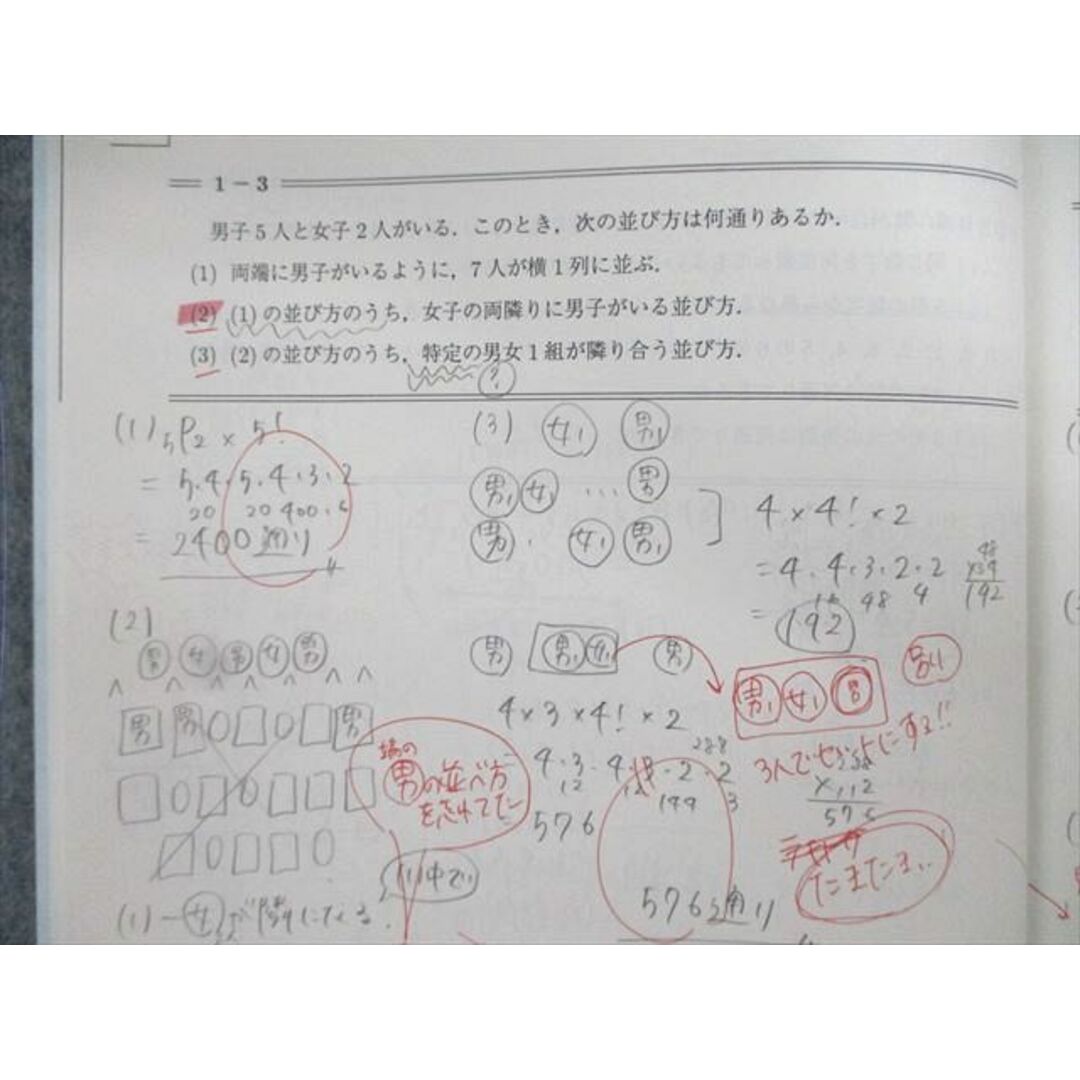 1－3
男子5人と女子2人がいる．このとき，次の並び方は何通りあるか．
(1) 両端に男子がいるように，7人が横1列に並ぶ．
(2) (1)の並び方のうち，女子の両隣りに男子がいる並び方．
(3) (2)の並び方のうち，特定の男女1組が隣り合う並び方．
?
(1) 5P2 × 5!
= 5.4.5.4.3.2
20 20 400.6
= 2400通り
(2)
男 女 男 女 男
^ ^ ^ ^ ^ ^
男 男 男
端の
男の並べ方
を忘れてたー
(1)中で
(1)-女が隣にくる.
(3) 女1 男1
男1 女1 … 男
男. 女1 男1
4×4!×2
= 4.4.3.2.2
16 48 4
= 192
48
×4
192
男 男1女1 男
男1 女1 男
別
3人でセットにする!!
4×3×4!×2
288
12
144
576
×
576
576通り
たまたま..